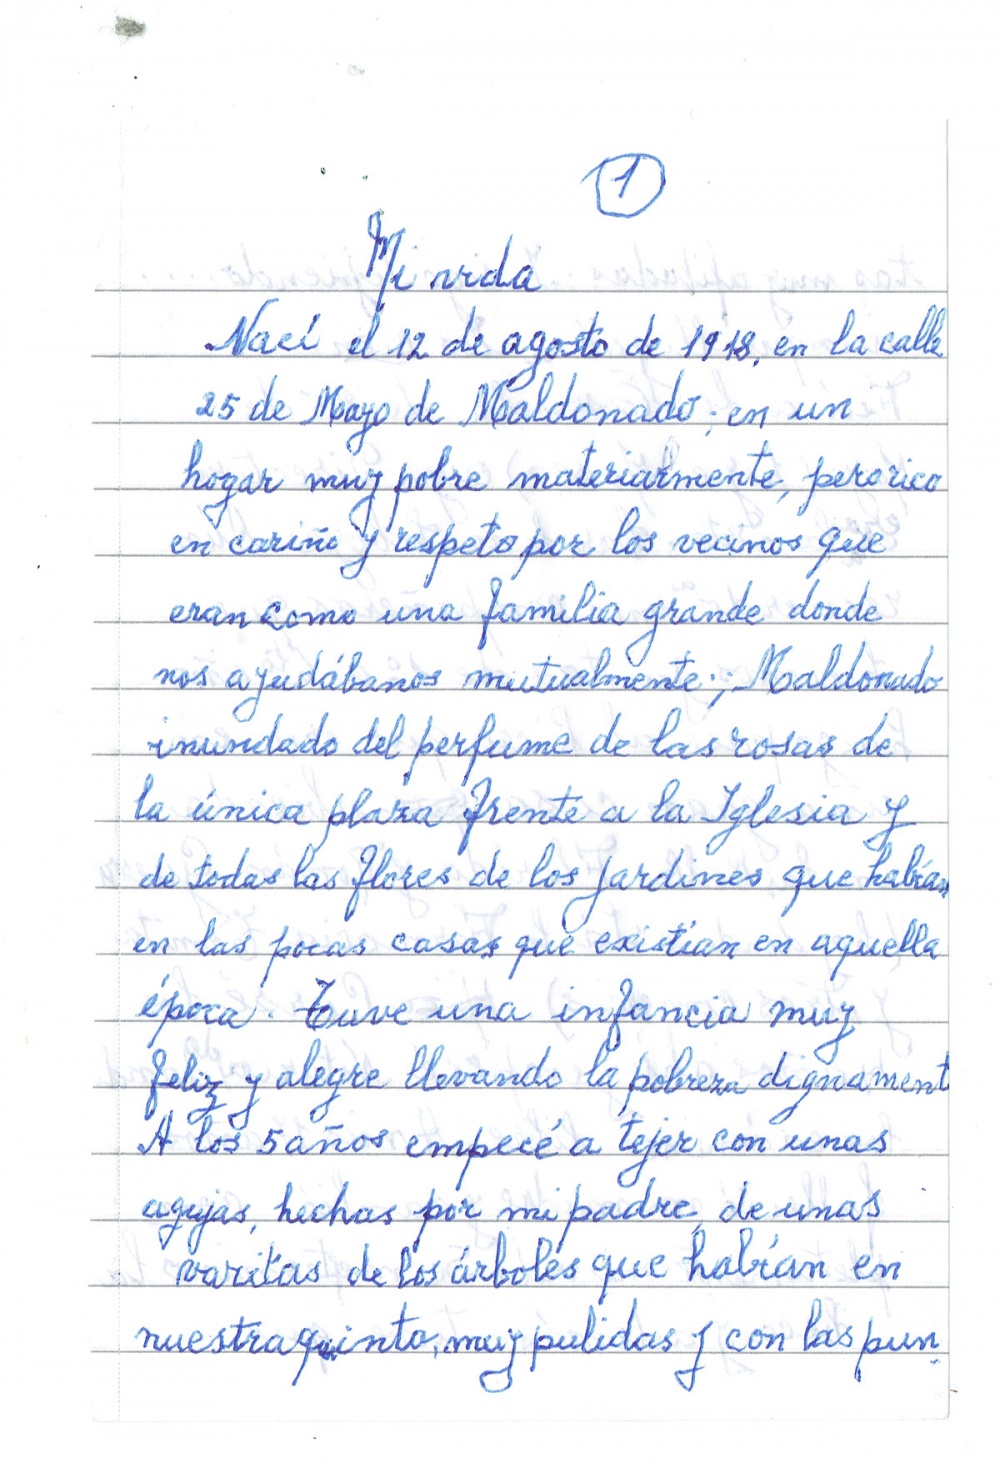 1
Mi vida
Nací el 12 de agosto de 1918, en la calle
25 de Mayo de Maldonado; en un
hogar muy pobre materiarmente, pero rico
en cariño y respeto por los vecinos que
eran como una familia grande donde
nos ayudábanos mutualmente.; Maldonado
inundado del perfume de las rosas de
la única plaza frente a la Iglesia y
de todas las flores de los jardines que habían
en las pocas casas que existían en aquella
época. Tuve una infancia muy
feliz y alegre llevando la pobreza dignament
A los 5 años empecé a tejer con unas
agujas, hechas por mi padre, de unas
varitas de los árboles que habían en
nuestra quinta, muy pulidas y con las pun